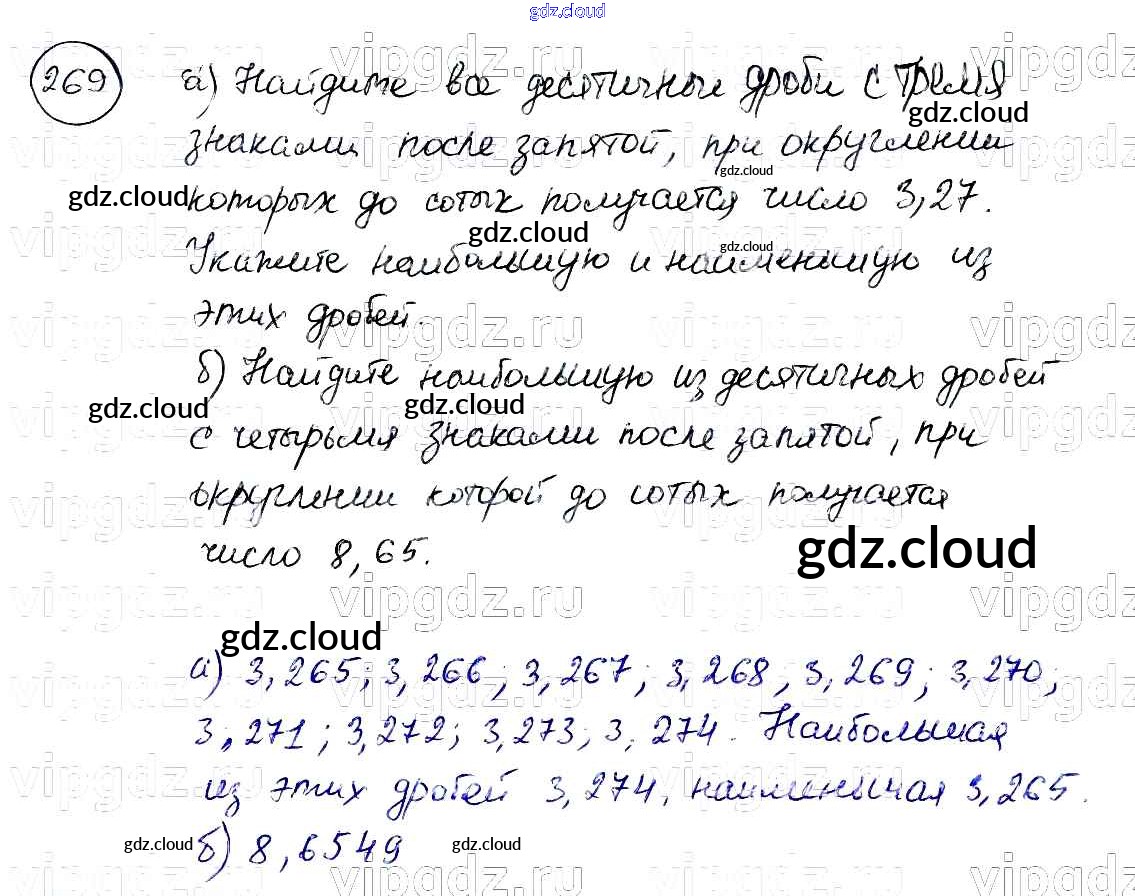 gdz.cloud
269 а) Найдите все десятичные дроби с тремя
gdz.cloud
знаками после запятой, при округлении
gdz.cloud
gdz.cloud которых до сотых получается число 3,27.
gdz.cloud gdz.cloud
Укажите наибольшую и наименьшую из
этих дробей.
б) Найдите наибольшую из десятичных дробей
gdz.cloud gdz.cloud
с четырьмя знаками после запятой, при
округлении которой до сотых получается
число 8,65.
gdz.cloud
gdz.cloud
а) 3,265; 3,266; 3,267; 3,268, 3,269; 3,270;
3,271; 3,272; 3,273; 3,274. Наибольшая
из этих дробей 3,274, наименьшая 3,265.
б) 8,6549
gdz.cloud gdz.cloud
vipgdz.ru